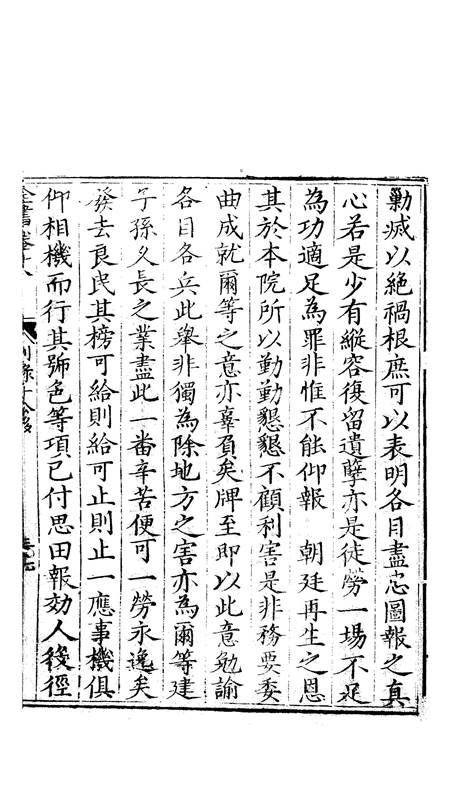 勦滅以絕禍根庶可以表明各目盡忠圖報之真
心若是少有縱容復留遺孽亦是徒勞一場不足
為功適足為罪非惟不能仰報　朝廷再生之恩
其於本院所以勤勤懇懇不顧利害是非務要委
曲成就爾等之意亦辜負矣牌至即以此意勉諭
各目各兵此舉非獨為除地方之害亦為爾等建
子孫久長之業盡此一畨辛苦便可一勞永逸矣
發去良民其榜可給則給可止則止一應事機俱
仰相機而行其號色等項已付思田報効人後徑
全書卷十八